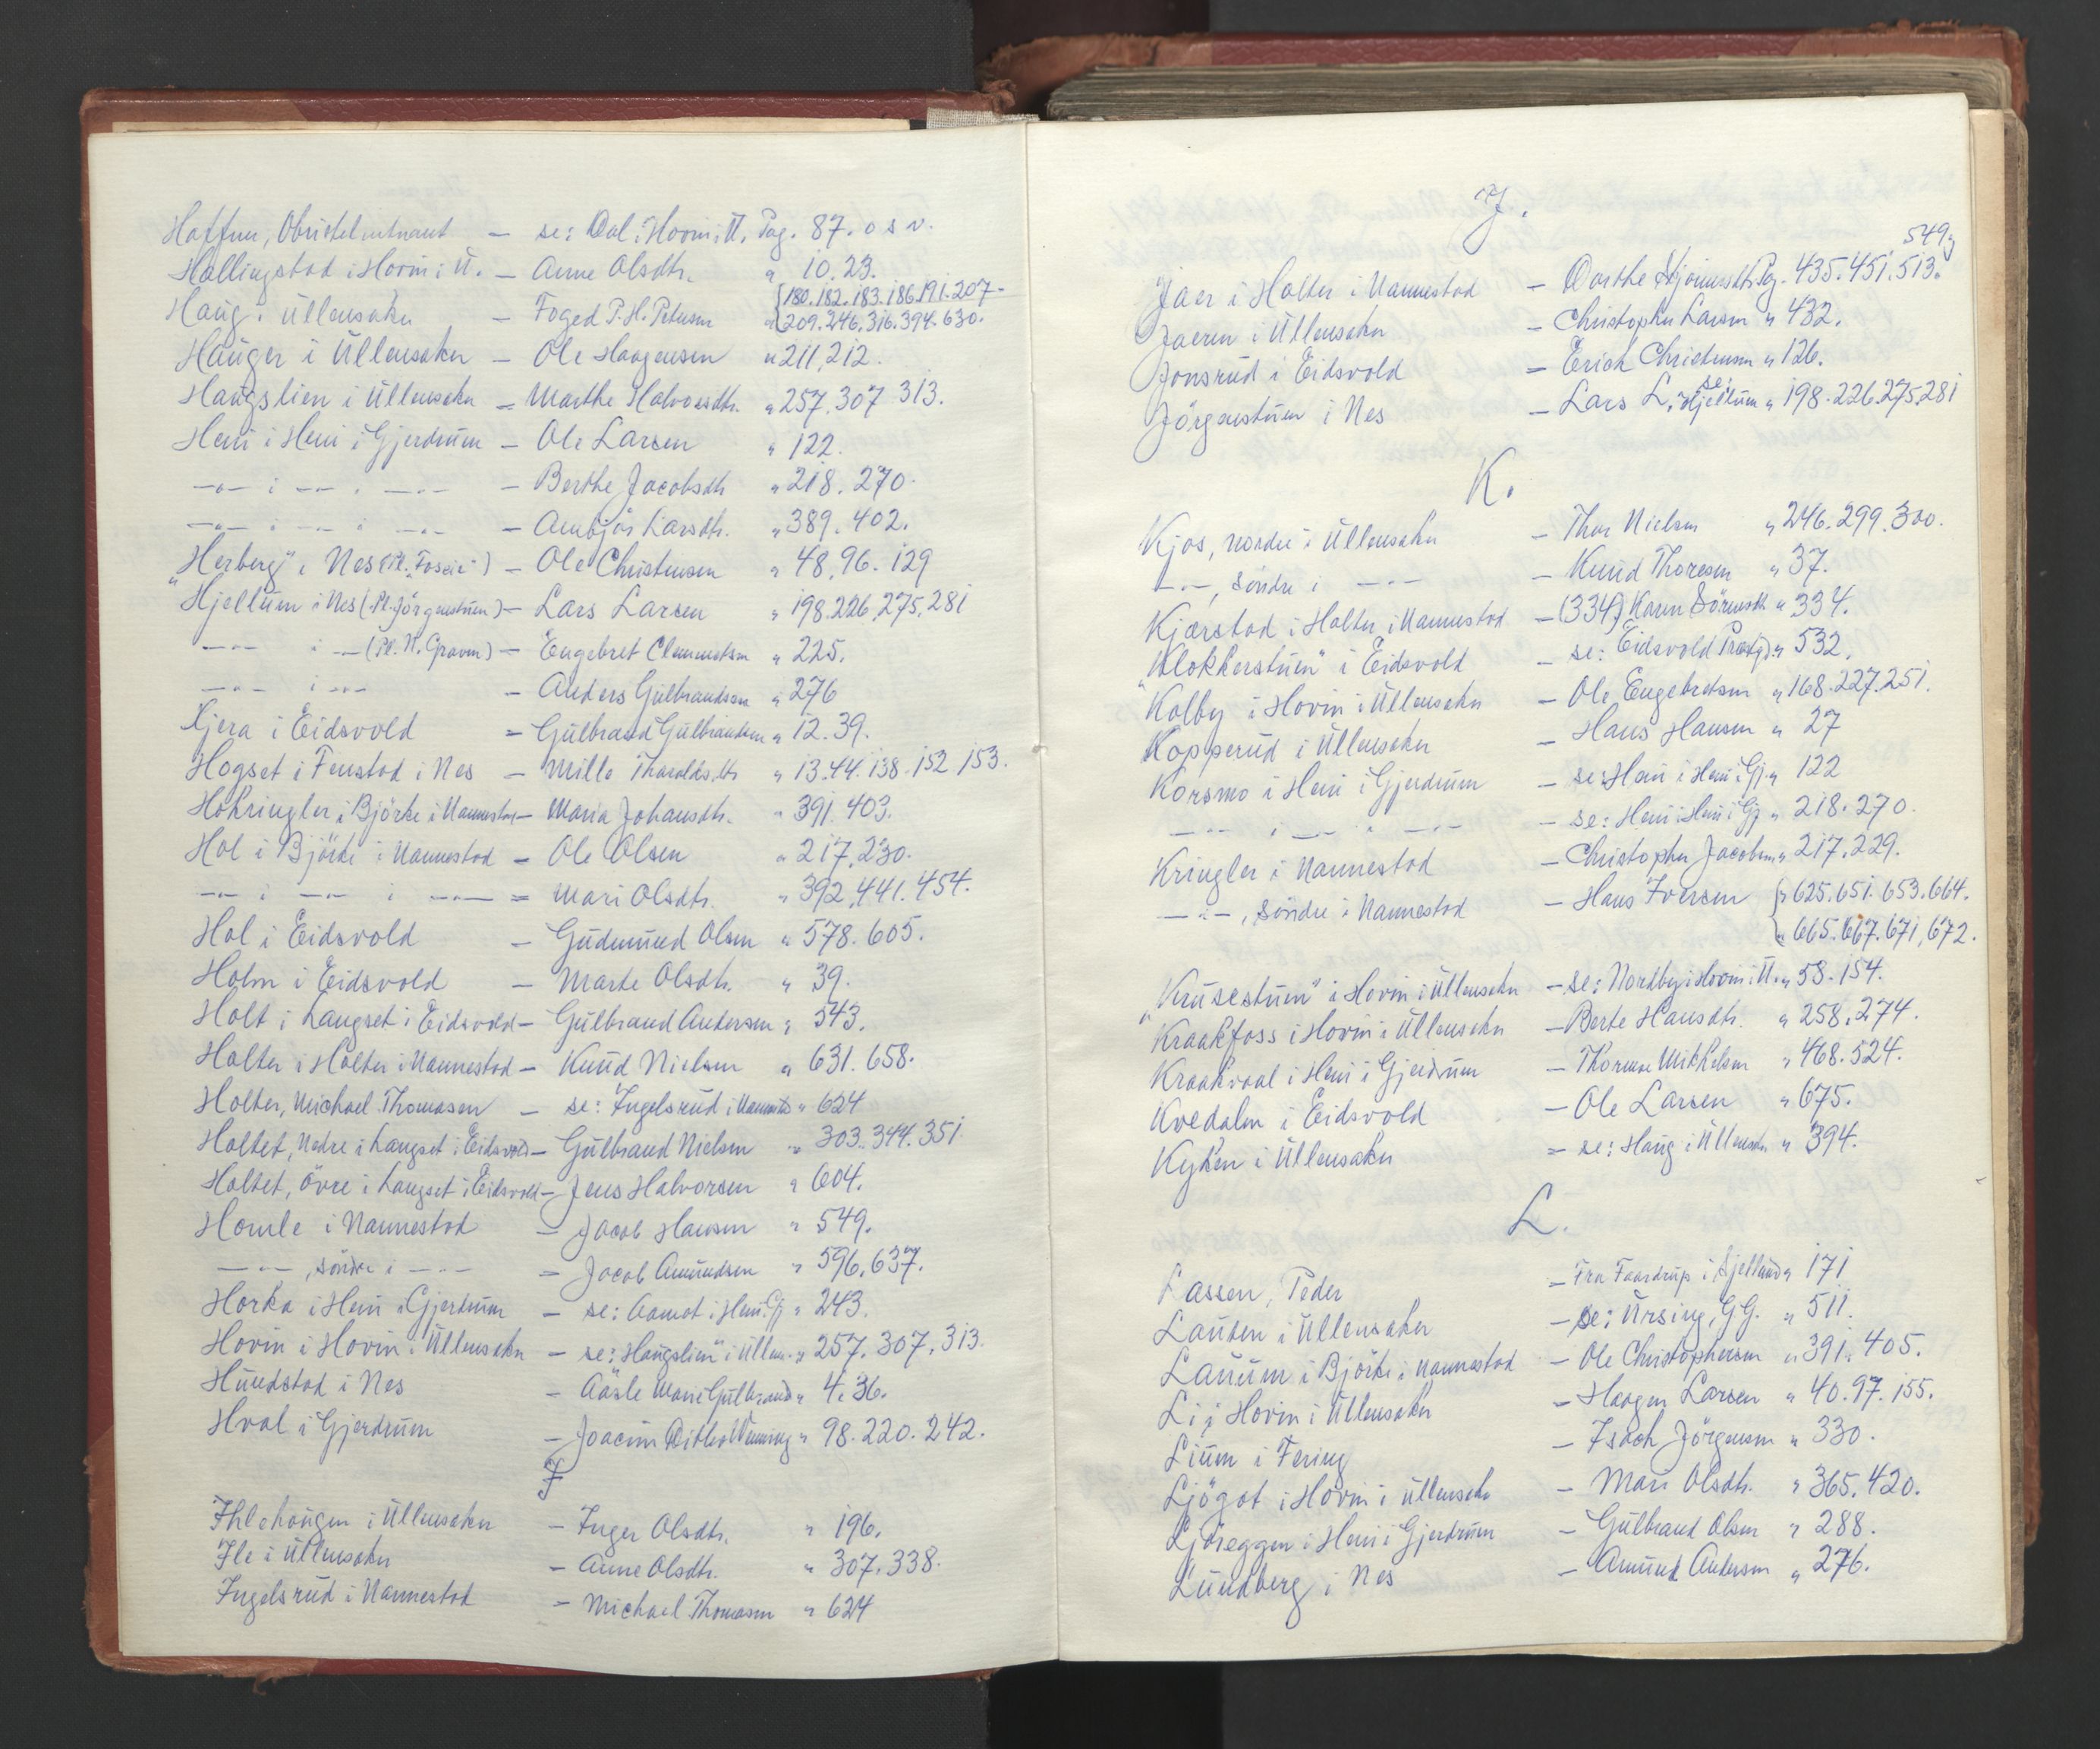 Haffner, Obristeleutnant — se: Dal i Hovin i U. Pag. 87. o s v.
Hallingstad i Hovin i U. — Anne Olsdtr. " 10.23.
Haug i Ullensaker — Foged P. H. Petersen " {180.182.183.186.191.207-
209.246.316.394.630.
Hauger i Ullensaker — Ole Haagensen " 211,212.
Haugslien i Ullensaker — Marthe Halvorsdtr. " 257.307 313.
Heni i Heni i Gjerdrum — Ole Larsen " 122.
—"— i —"— i —"— — Berthe Jacobsdtr " 218.270.
—"— i —"— i —"— — Ambjør Larsdtr. " 389.402.
"Herberg" i Nes — Ole Christensen " 48.96.129
Hjellum i Nes (Pl. Jörgenstuen) — Lars Larsen " 198.226.275.281
—"— i —"— (Pl. N. Graven) — Engebret Clemmetsen " 225.
—"— i —"— — Anders Gulbrandsen " 276
Hjera i Eidsvold — Gulbrand Gulbrandsen " 12.39.
Hogset i Fenstad i Nes — Mille Tharaldsdtr " 13.44.138.152 153.
Hokringler i Björke i Nannestad — Maria Johansdtr. " 391.403.
Hol i Björke i Nannestad — Ole Olsen " 217.230.
—"— i —"— i —"— — Mari Olsdtr. " 392.441.454.
Hol i Eidsvold — Gudmund Olsen " 578.605.
Holm i Eidsvold — Marte Olsdtr. " 39.
Holt i Langset i Eidsvold — Gulbrand Andersen " 543.
Holter i Holter i Nannestad — Knud Nielsen " 631.658.
Holter, Michael Thomasen — se: Ingelsrud i Nannestd " 624
Holtet, Nedre i Langset i Eidsvold — Gulbrand Nielsen " 303.344.351
Holtet, Övre i Langset i Eidsvold — Jens Halvorsen " 604.
Homle i Nannestad — Jacob Hansen " 549.
—"—, söndre i —"— — Jacob Amundsen " 596.637.
Horka i Heni i Gjerdrum — se: Aamot i Heni i Gj " 243.
Hovin i Hovin i Ullensaker — se: "Haugslien" i Ullen. " 257.307.313.
Hundstad i Nes — Aasle Marie Gulbrandsd " 4.36.
Hval i Gjerdrum — Joacim Ditlev Wenning " 98.220.242.
I
Ihlehaugen i Ullensaker — Inger Olsdtr. " 196.
Ile i Ullensaker — Anne Olsdtr. " 307.338.
Ingelsrud i Nannestad — Michael Thomasen " 624
J.
549,
Jaer i Holter i Nannestad — Dorthe Pag. 435.451.513.
Jaeren i Ullensaker — Christopher Larsen " 432.
Jonsrud i Eidsvold — Erich Christensen " 126.
Jörgenstuen i Nes — Lars L. se: Hjellum " 198.226.275.281
K.
Kjos, nordre i Ullensaker — Thor Nielsen " 246.299.300.
—"—, söndre i —"— — Knud Thoresen " 37.
Kjærstad i Holter i Nannestad — (334) Karen Sörensdtr " 334.
"Klokkerstuen" i Eidsvold — se: Eidsvold Præstgd. " 532.
Kolby i Hovin i Ullensaker — Ole Engebretsen " 168.227.251.
Kopperud i Ullensaker — Hans Hansen " 27
Korsmo i Heni i Gjerdrum — se: Heni i Heni i Gj. " 122
—"— i —"— i —"— — se: Heni i Heni i Gj " 218.270.
Kringler i Nannestad — Christopher Jacobsen " 217.229.
—"—, Söndre i Nannestad — Hans Iversen {" 625.651.653.664.
" 665.667.671,672.
"Krusestuen" i Hovin i Ullensaker — se: Nordby i Hovin i U. " 58.154.
Kraakfoss i Hovin i Ullensaker — Berte Hansdtr. " 258.274.
Kraakvaal i Heni i Gjerdrum — Thomas Mikkelsen " 468.524.
Kvedalen i Eidsvold — Ole Larsen " 675.
Kyken i Ullensaker — se: Haug i Ullensaker " 394.
L.
Lassen, Peder — Fra Faardrup i Sjelland " 171
Lauten i Ullensaker — se: Ursing, G G. " 511.
Lauum i Björke i Nannestad — Ole Christophersen " 391.405.
Li i Hovin i Ullensaker — Haagen Larsen " 40.97.155.
Lium i Fering — Isach Jörgensen " 330.
Ljögot i Hovin i Ullensaker — Mari Olsdtr. " 365.420.
Ljöreggen i Heni i Gjerdrum — Gulbrand Olsen " 288.
Lundberg i Nes — Amund Andersen " 276.